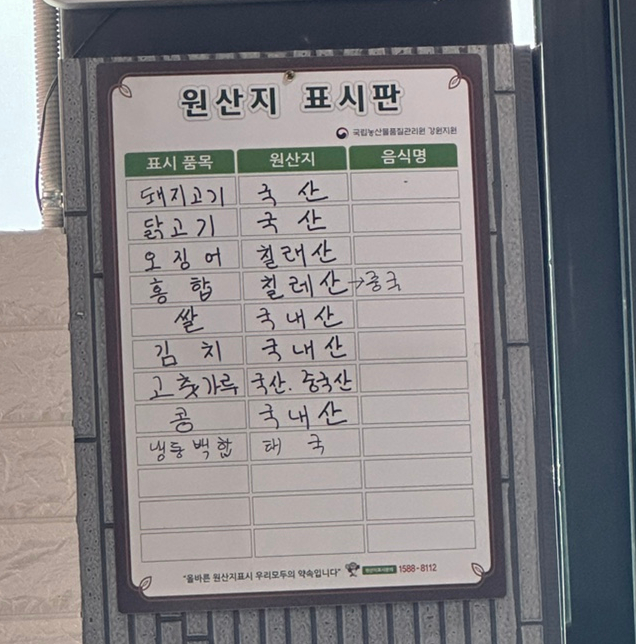 원산지 표시판
국립농산물품질관리원 강원지원
표시 품목 원산지 음식명
돼지고기 국 산
닭고기 국 산
오징어 칠래산
홍합 칠레산→중국
쌀 국내산
김치 국내산
고춧가루 국산. 중국산
콩 국내산
냉동백합 태국
"올바른 원산지표시 우리모두의 약속입니다" 원산지표시문의 1588-8112